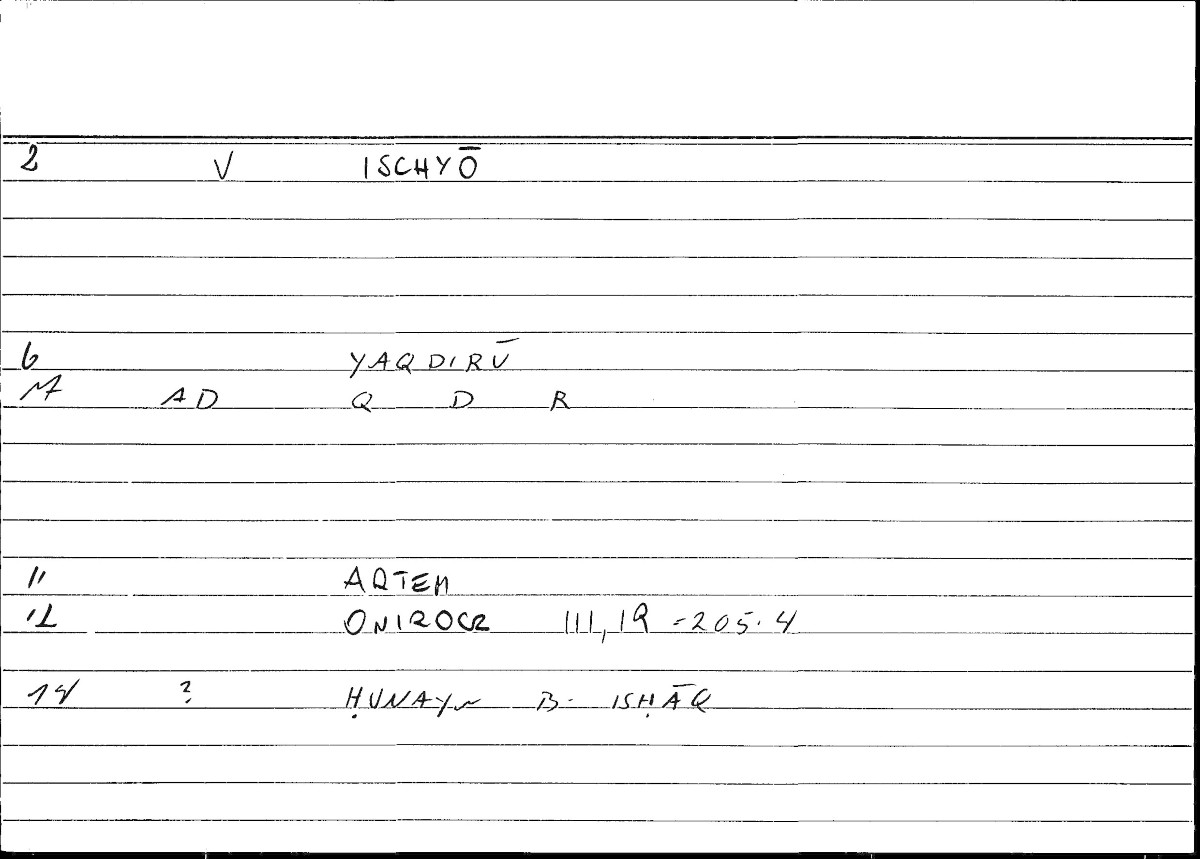 2 V ISCHYŌ
6 YAQDIRŪ
AD Q D R
11 ARTEM
12 ONIROCR III, = 205.4
14 ? ḤUNAYN B. ISḤĀQ